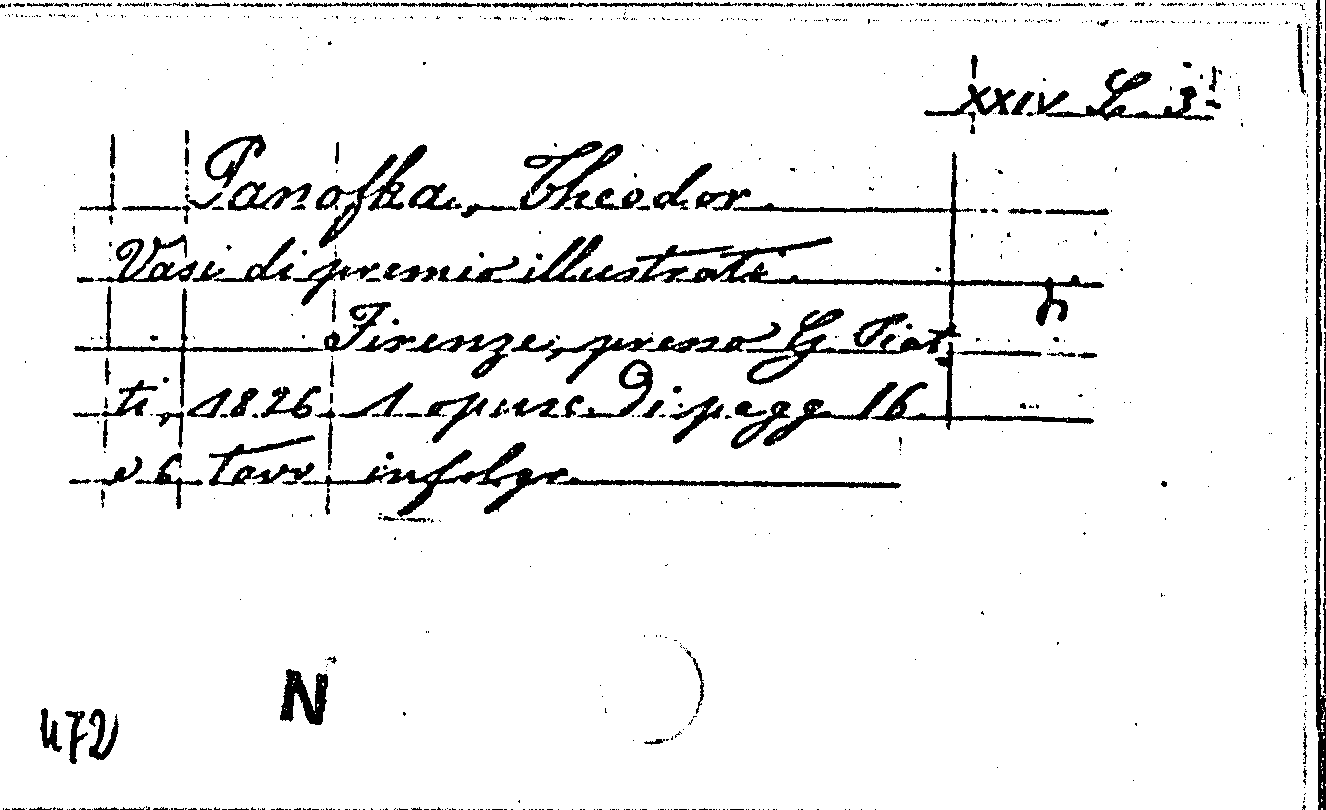 XXIV L 3
Panofka, Theodor.
Vasi di premio illustrati.
Firenze, presso G. Piat-
ti, 1826. 1 opusc. di pagg. 16.
e 6 tavv in folgr.
N
472